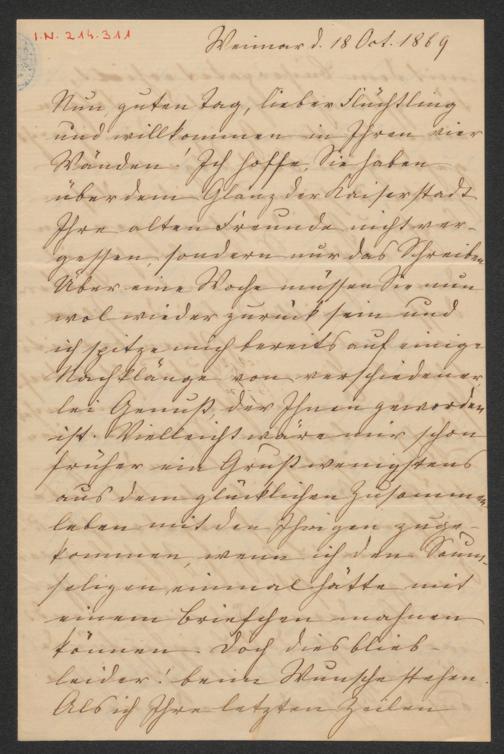 I.N. 214.311
Weimar d. 18 Oct. 1869
Nun guten Tag, lieber Flüchtling
und willkommen in Ihren vier
Wänden! Ich hoffe, Sie haben
über dem Glanz der Kaiserstadt
Ihre alten Freunde nicht ver-
gessen, sondern nur das Schreiben
Über eine Woche müssen Sie nun
wol wieder zurück sein und
ich spitze mich bereits auf einige
Nachklänge von verschiedener
lei Genuß, der Ihnen geworden
ist. Vielleicht wäre mir schon
früher ein Gruß wenigstens
aus dem glücklichen Zusammen
leben mit den Ihrigen zuge-
kommen, wenn ich den Saum-
seligen einmal hätte mit
einem Briefchen mahnen
können. Doch dies blieb
leider! beim Wunsche stehen.
Als ich Ihre letzten Zeilen